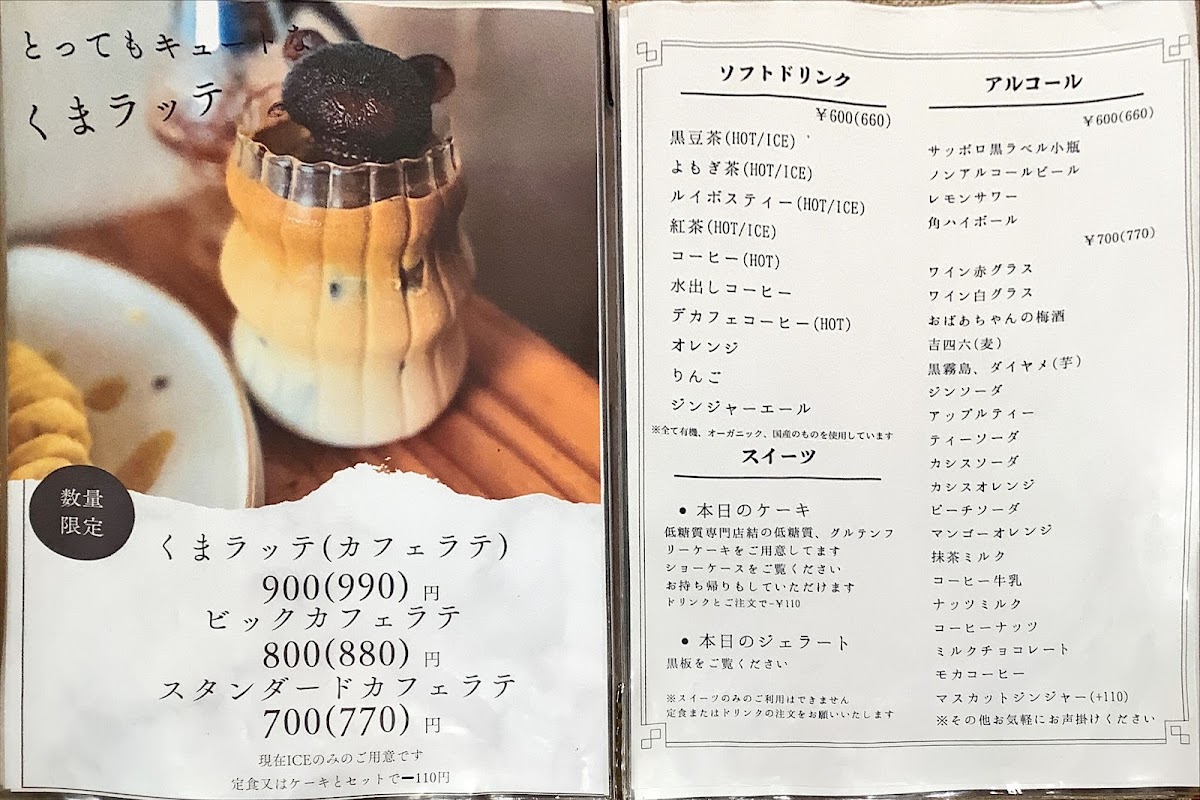 とってもキュートな
くまラッテ
数量
限定
くまラッテ(カフェラテ)
900(990) 円
ビックカフェラテ
800(880) 円
スタンダードカフェラテ
700(770) 円
現在ICEのみのご用意です
定食又はケーキとセットでー110円
ソフトドリンク
¥600(660)
黒豆茶(HOT/ICE)
よもぎ茶(HOT/ICE)
ルイボスティー(HOT/ICE)
紅茶(HOT/ICE)
コーヒー(HOT)
水出しコーヒー
デカフェコーヒー(HOT)
オレンジ
りんご
ジンジャーエール
※全て有機、オーガニック、国産のものを使用しています
スイーツ
● 本日のケーキ
低糖質専門店結の低糖質、グルテンフ
リーケーキをご用意してます
ショーケースをご覧ください
お持ち帰りもしていただけます
ドリンクとご注文で-¥110
● 本日のジェラート
黒板をご覧ください
※スイーツのみのご利用はできません
定食またはドリンクの注文をお願いいたします
アルコール
¥600(660)
サッポロ黒ラベル小瓶
ノンアルコールビール
レモンサワー
角ハイボール
¥700(770)
ワイン赤グラス
ワイン白グラス
おばあちゃんの梅酒
吉四六(麦)
黒霧島、ダイヤメ(芋)
ジンソーダ
アップルティー
ティーソーダ
カシスソーダ
カシスオレンジ
ピーチソーダ
マンゴーオレンジ
抹茶ミルク
コーヒー牛乳
ナッツミルク
コーヒーナッツ
ミルクチョコレート
モカコーヒー
マスカットジンジャー(+110)
※その他お気軽にお声掛けください